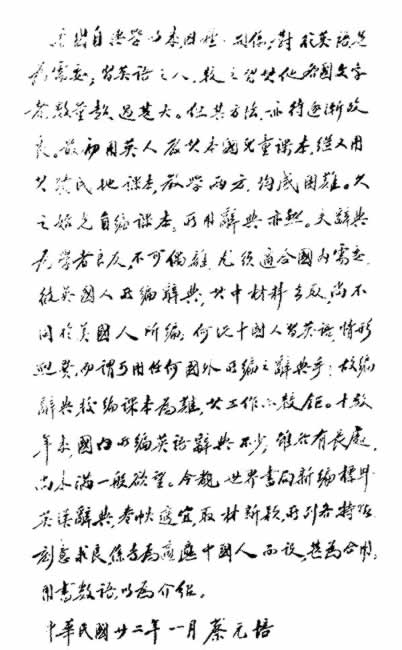 吾国自海通以来,因种种关系,對於英語甚
感需要;習英語之人,較之習其他各國文字
者,數量超過甚大。但其方法,亦待逐漸改
良。最初用英人教其本國兒童課本,繼又用
其殖民地課本,教學两方,均感困難。久
之始克自編課本,所用辭典亦然。夫辭典
為學者良友,不可偶離,尤須適合國内需要。
彼英國人所編辭典,其中材料去取,尚不
同於美國人所編;何况中國人習英語,情形
迥異,而謂可用任何國外所編之辭典乎?故編
辭典較編課本為難,其工作亦較鉅。十數
年来國内所編英語辭典不少,雖各有長處,
尚未滿一般欲望。今觀世界書局新編標準
英漢辭典,卷帙適宜,取材新穎,所列各特點,
刻意求良,係專為適應中國人而設,甚為合用;
因書數語,以為介紹。
中華民國廿二年一月蔡元培